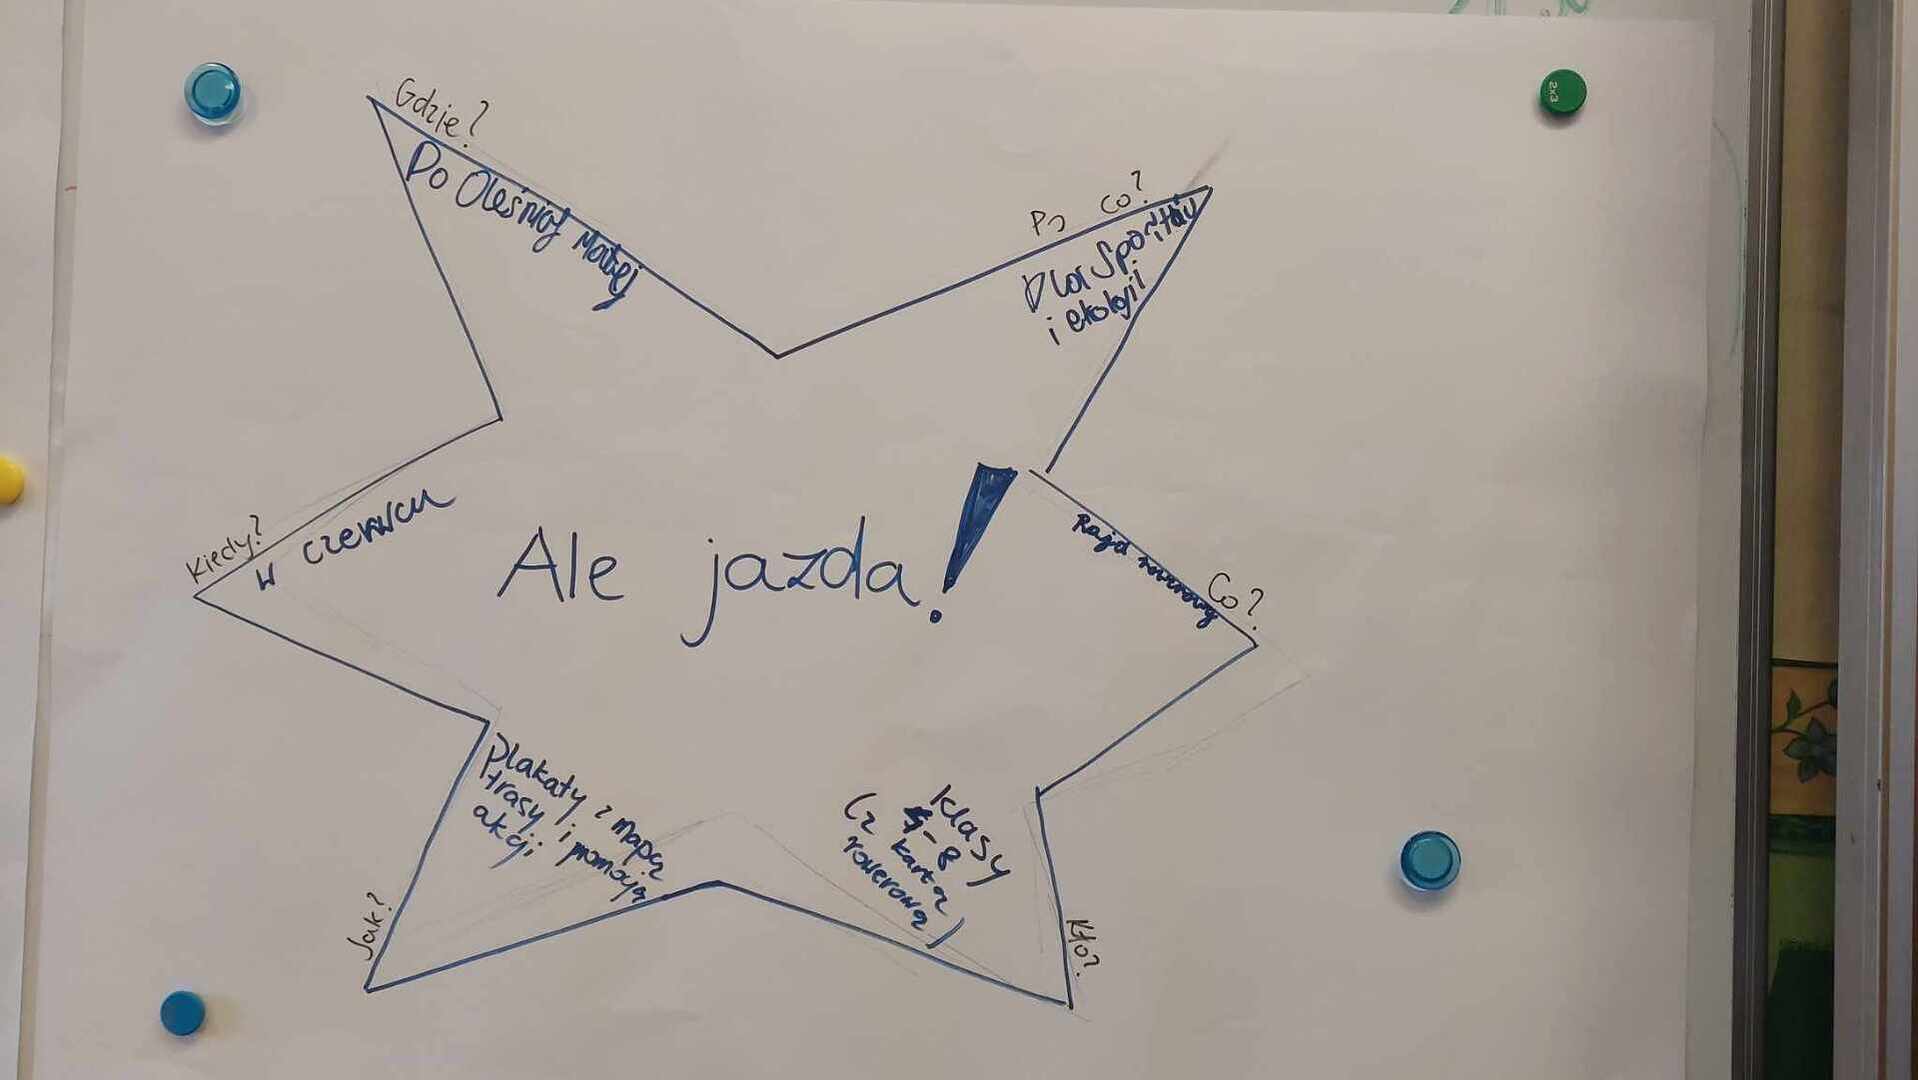 Gdzie?
Do Oleśnicy Małej
Po co?
Dla sportu
i ekologii
Kiedy?
w czerwcu
Ale jazda!
Co?
Rajd rowerowy
Jak?
Plakaty z mapą
trasy i promocją
akcji
Kto?
Klasy
4-8
(z kartą
rowerową)
2x3